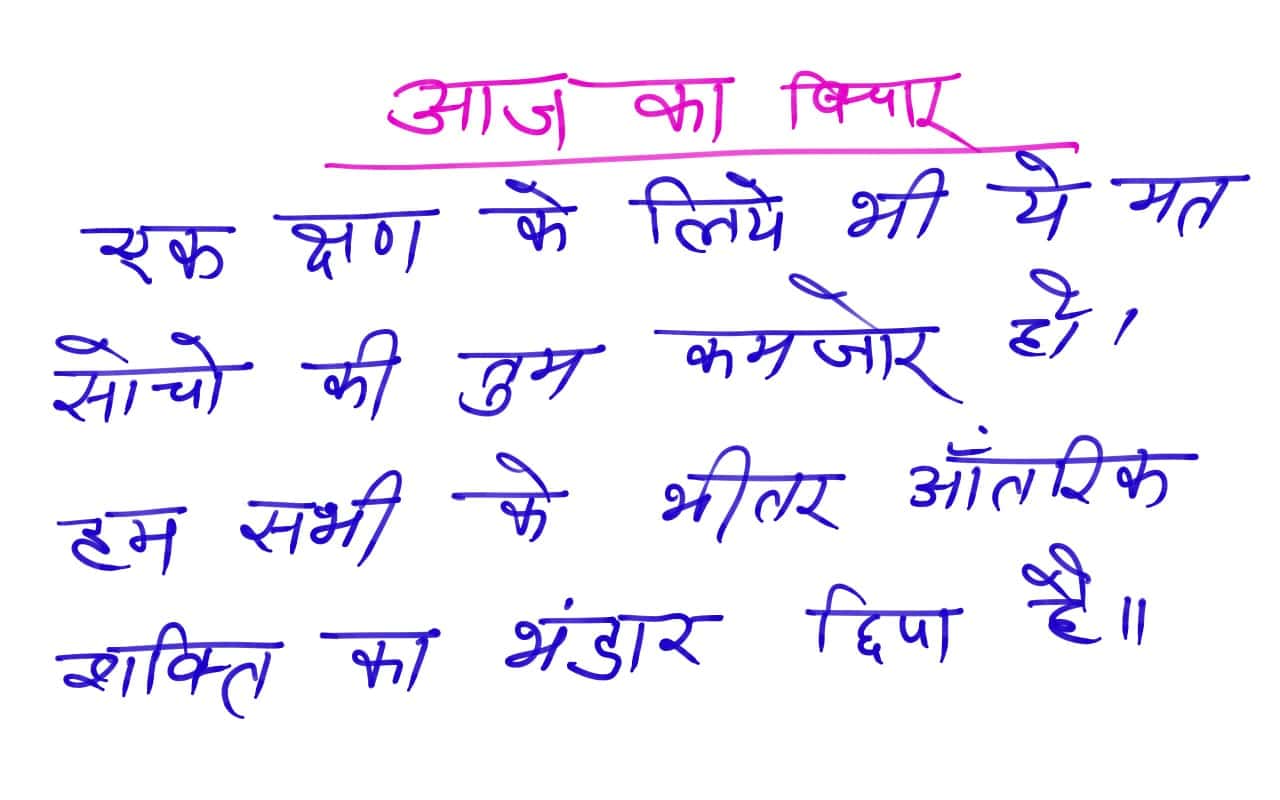 आज का विचार
एक क्षण के लिये भी ये मत
सोचो की तुम कमजोर हो।
हम सभी के भीतर आंतरिक
शक्ति का भंडार छिपा है॥